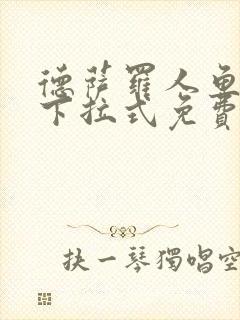 德萨罗人鱼
下拉式免費
抉一琴獨唱空